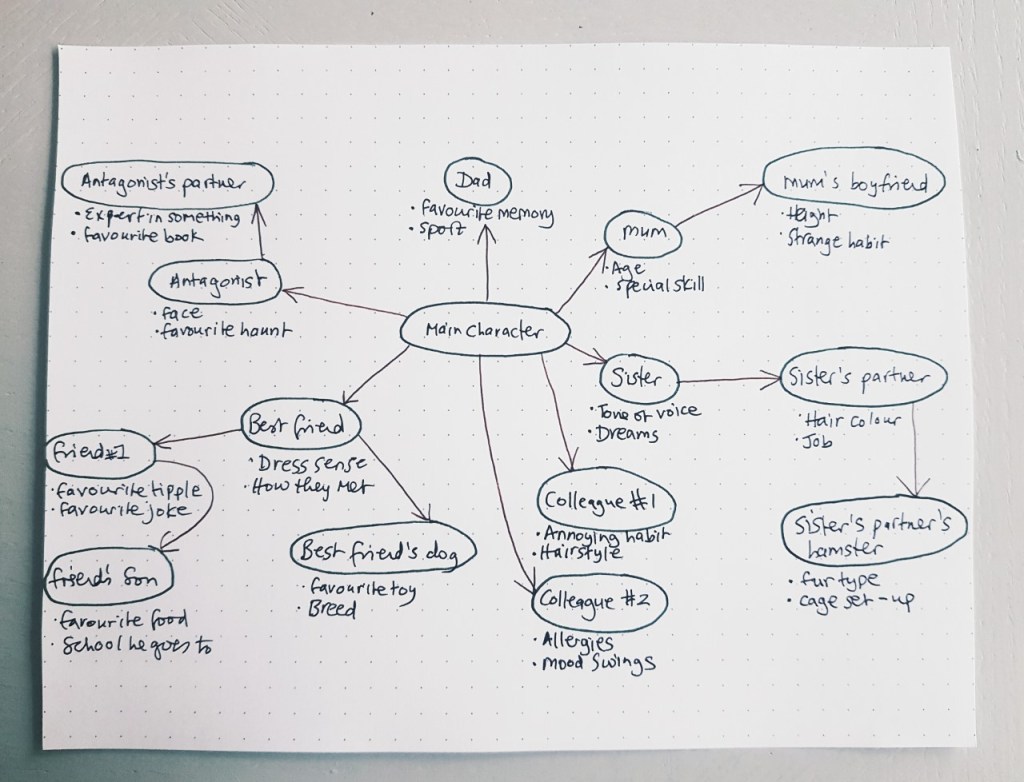 Antagonist's partner
• Expert in something
• favourite book
Antagonist
• face
• favourite haunt
Dad
• favourite memory
• sport
mum
• Age
• special skill
mum's boyfriend
• Height
• Strange habit
Main character
Sister
• Tone of voice
• Dreams
Sister's partner
• Hair colour
• Job
Sister's partner's
hamster
• fur type
• cage set-up
Best friend
• Dress sense
• How they met
friend #1
• favourite tipple
• favourite joke
friend's son
• favourite food
• School he goes to
Best friend's dog
• favourite toy
• Breed
Colleague #1
• Annoying habit
• Hairstyle
Colleague #2
• Allergies
• Mood swings